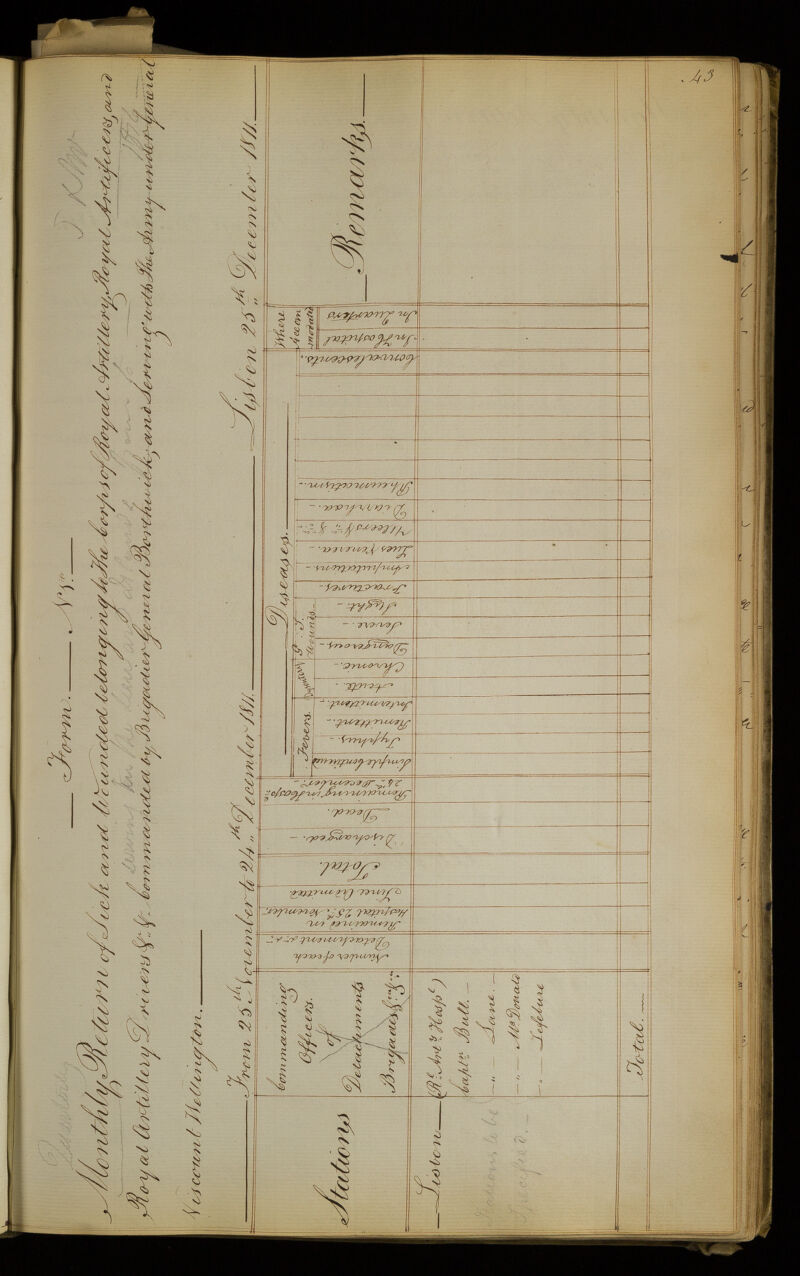 43
Form: N.º 5.
Monthly Return of Sick and Wounded belonging to the Corps of Royal Artillery, Royal Artificers, and
Royal Artillery Drivers &c. &c. Commanded by Brigadier General Borthwick, and Serving with the Army under General
Viscount Wellington.
From 25th November to 24th December 1811. Lisbon 25th December 1811.
Stations
Commanding
Officers
of
Detachments
Brigades
Number of each
Detachment
Remained in
Hospital 25th November
Since Admitted
Total.
Discharged.
Dead.
Remaining in Hosp.
25th December.
Diseases.
Fevers.
Simple Continued
Typhus
Remittent.
Intermittent.
Dysentery
Acute.
Chronic.
G. S. Wounds.
Dangerous
Severe.
Slight.
Fractures.
Amputations
Lues Venerea.
Ulcers
Diarrhœa.
Rheumatism.
Convalescents.
Where Accommodated
In Hospital
In Quarters
Remarks.
Lisbon (Rl. Arty. Hospl.)
Captn. Bull.
" Lane.
" McDonald
" Lefebure
Stations to be
Specified.
Total.